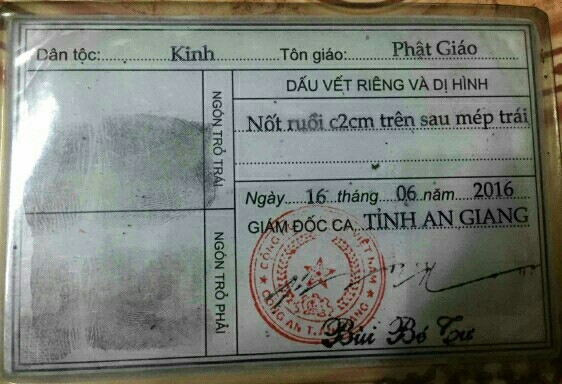 Dân tộc: Kinh Tôn giáo: Phật Giáo
NGÓN TRỎ TRÁI
NGÓN TRỎ PHẢI
DẤU VẾT RIÊNG VÀ DỊ HÌNH
Nốt ruồi c2cm trên sau mép trái
Ngày 16 tháng 06 năm 2016
GIÁM ĐỐC CA. TỈNH AN GIANG
CÔNG AN T. AN GIANG
Bùi Bé Tư